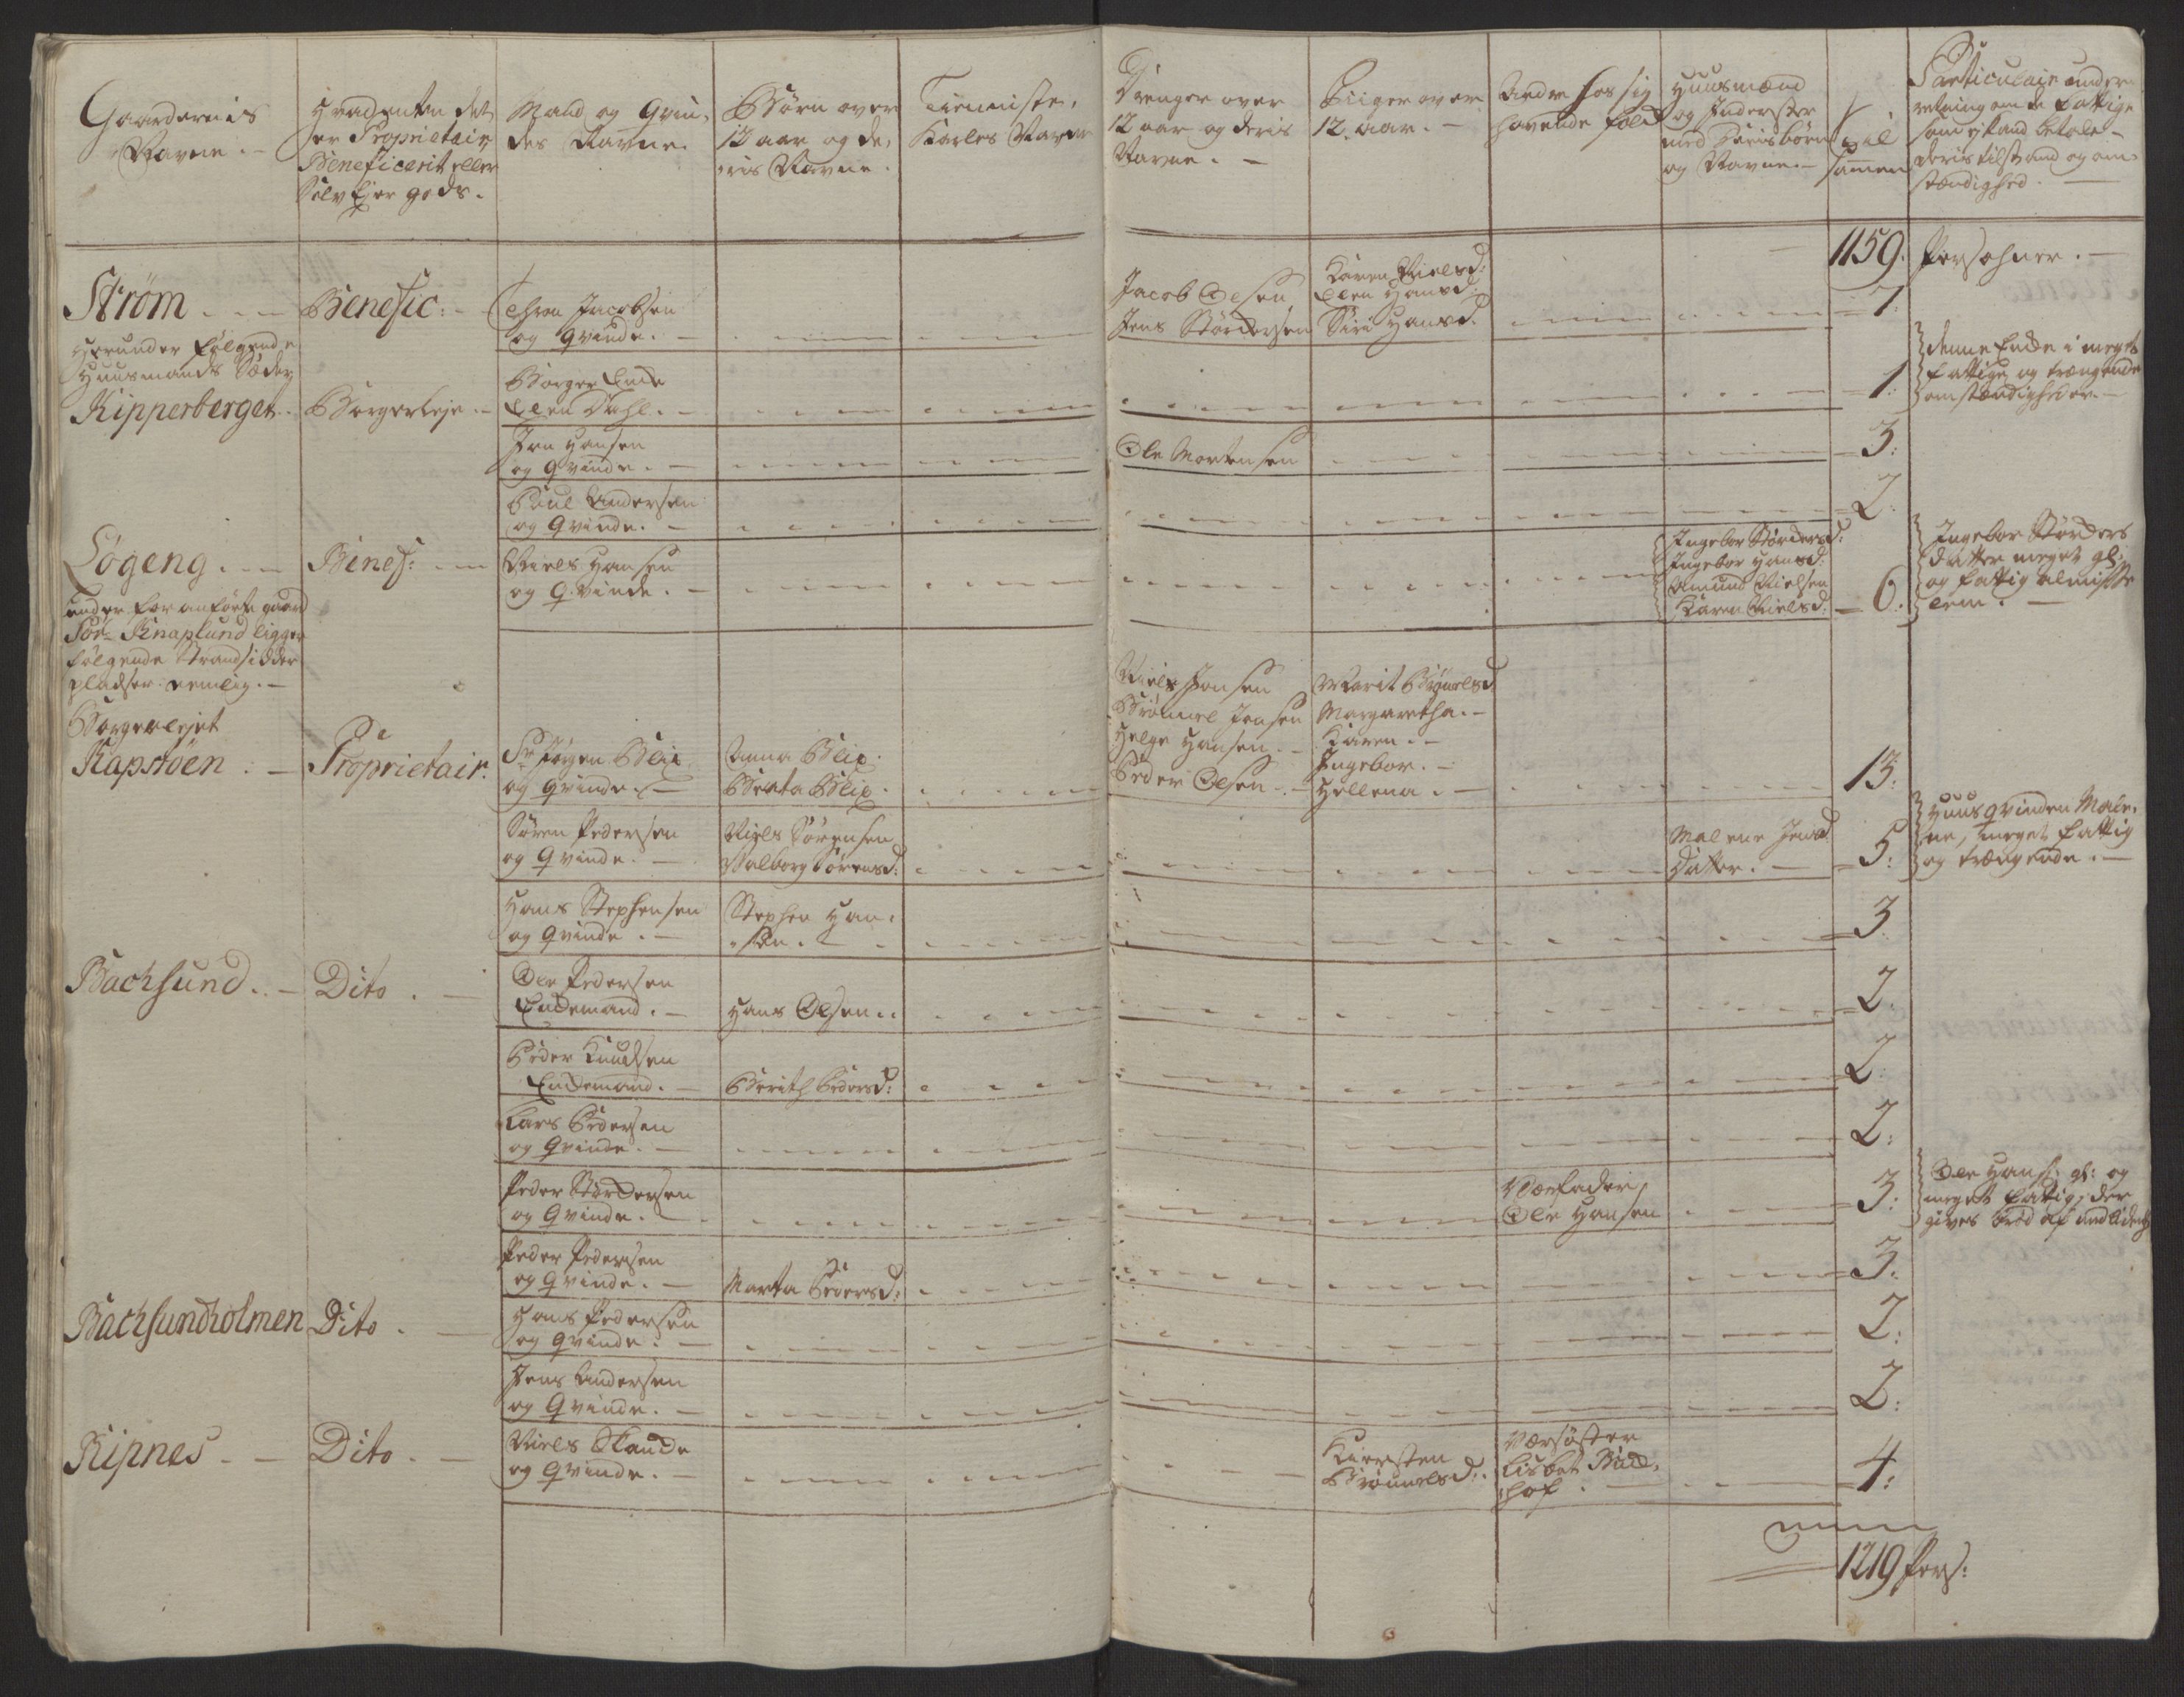 Gaardernis
Navne. -
Hvadenten det
er Proprietair
Beneficerit eller
Selv Ejer gods.
Mand og Qvin,
des Navne.
Børn over
12 aar og de,
ris Navne.
Tienniste,
Karles Navne
Drenger over
12 aar og deris
Navne. -
Piiger over
12. aar. -
Andre hos sig
havende folk
Huusmænd
og Inderster
med Deris børn
og Navne. -
Til
samen
Particulair under
retning om de fattige
som ej kand betale -
deris tilstand og om-
stændighed. -
1159. Persohner. -
Strøm - - -
Benefic: -
Thron Jacobsen
og Qvinde. -
Jacob Olsen
Jens Størchersen
Karen Nielsd:
Ellen Hansd:
Siri Hansd.
7.
Herunder følgende
Huusmands Sæder
Kipperberget.
Borgerleje. -
Borger Enke
Ellen Dahl. -
1.
denne Enke i meget
fattige og trængende
omstændigheder. -
Jon Hansen
og Qvinde. -
Ole Mortensen
3.
Poul Andersen
og Qvinde. -
2.
Søgeng. - -
Benef: - -
Niels Hansen
og Qvinde. -
Ingebor Størchersd:
Ingebor Hansd:
Amund Nielsen
Karen Nielsd:
6.
Ingebor Størchers
datter meget gl:
og fattig almisse
lem. -
under for anførte gaard
Sør- Knaplund ligger
følgende Strandsidder
pladser nemlig. -
Borgerlejet
Kapstøen. -
Proprietair.
Sr Jørgen Blix
og Qvinde. -
Anna Blix.
Berta Blix.
Niels Jonsen
Brønnel Jensen
Helge Hansen. -
Peder Olsen -
Marit Brønelsd
Margaretha. -
Karen. -
Ingebor. -
Hellena. -
13.
Søren Pedersen
og Qvinde. -
Niels Sørensen
Valborg Sørensd:
Malene Jensd
Datter. -
5:
Huusqvinden Male-
ne, meget fattig
og trængende. -
Hans Stephensen
og Qvinde. -
Stephen Han,
sen. -
3
Bachsund. -
Dito. -
Ole Pedersen
Enkemand. -
Hans Olsen.
2.
Peder Knudsen
Enkemand. -
Berith Pedersd:
2:
Lars Pedersen
og Qvinde. -
2:
Peder Størchersen
og Qvinde. -
Værfader
Ole Hansen
3:
Ole Hans: gl: og
meget fattig, der
gives brød af
Peder Pedersen
og Qvinde. -
Marta Pedersd:
3:
Bachsundholmen
Dito. -
Hans Pedersen
og Qvinde. -
2:
Jens Andersen
og Qvinde. -
2:
Kipnes - -
Dito. -
Niels Skancke
og Qvinde. -
Kiersten
Brønnelsd:
Værsøster
Lisbet Bud,
hof. -
4:
1219 Pers: